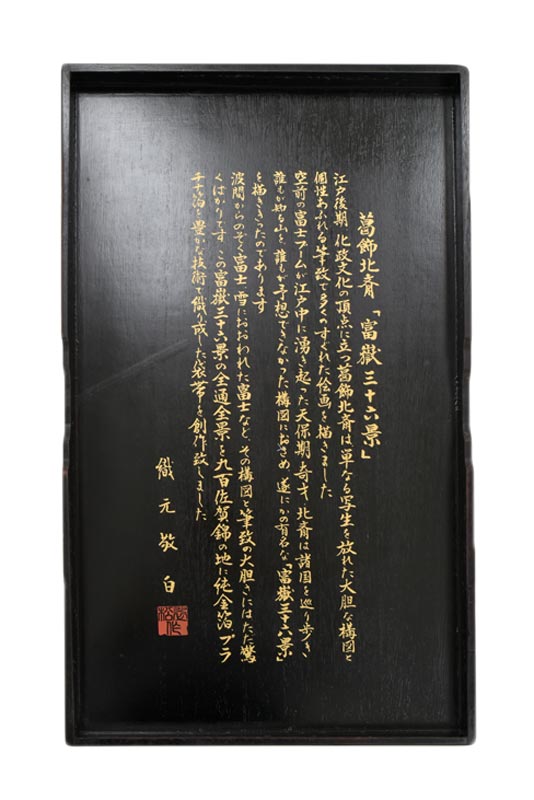 葛飾北斎「富嶽三十六景」
江戸後期 化政文化の頂点に立つ葛飾北斎は単なる写生を放れた大胆な構図と
個性あふれる筆致で多くのすぐれた絵画を描きました
空前の富士ブームが江戸中に湧き起った天保期 奇才 北斎は諸国を巡り歩き
誰もが知る山を 誰もが予想できなかった構図におさめ 遂にかの有名な「富嶽三十六景」
を描ききったのであります
波間からのぞく富士 雪におおわれた富士など、その構図と筆致の大胆さにはただ驚
くばかりです この富嶽三十六景の全通全景を九百佐賀錦の地に純金箔 プラ
チナ箔を豊かな技術で織り成した袋帯を創作致しました
織元敬白